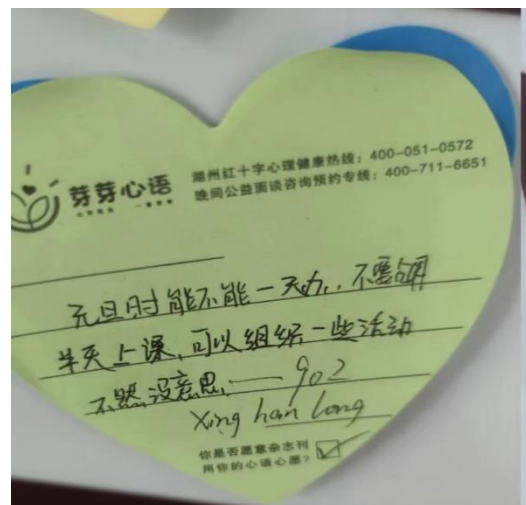 芽芽心语
湖州红十字心理健康热线：400-051-0572
晚间公益面谈咨询预约专线：400-711-6651
元旦时能不能一天办，不要占用
半天上课，可以组织一些活动
不然没意思，——902
xing han long
你是否愿意杂志刊
用你的心语心愿？